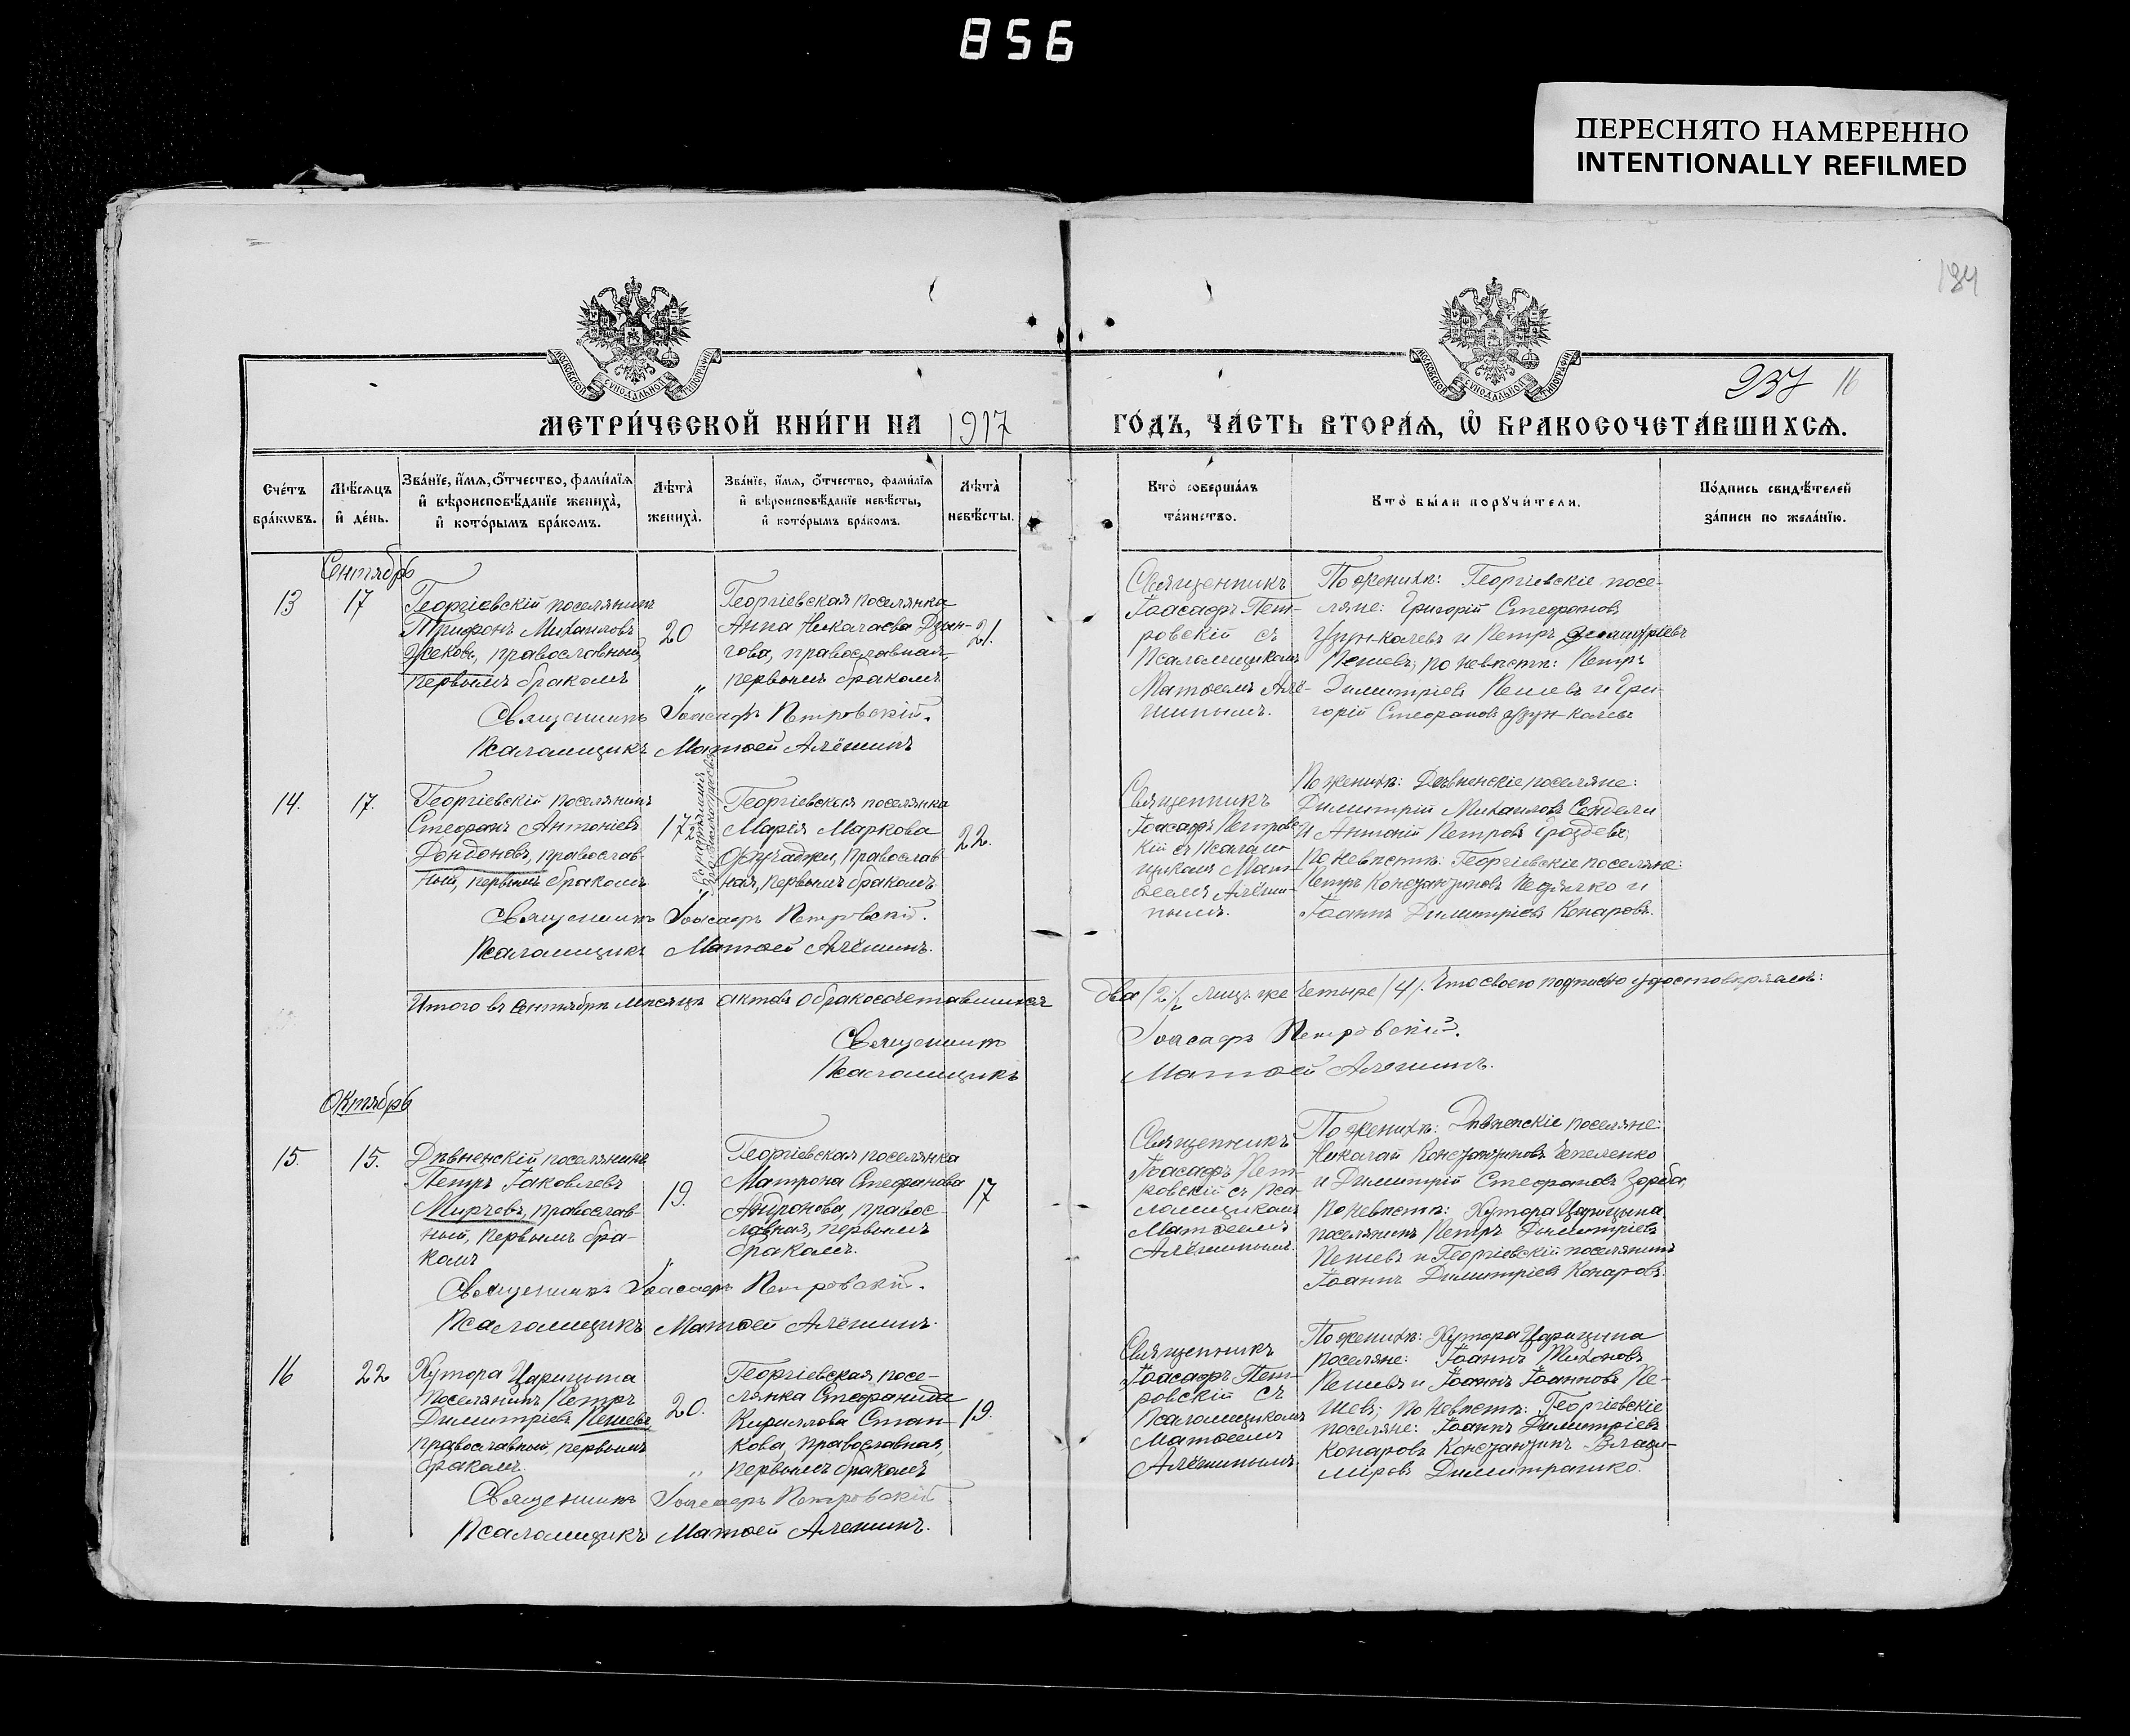 856
ПЕРЕСНЯТО НАМЕРЕННО
INTENTIONALLY REFILMED
184
237 16
МОСКОВСКОЙ СѴНОДАЛЬНОЙ ТИПОГРАФІИ
МОСКОВСКОЙ СѴНОДАЛЬНОЙ ТИПОГРАФІИ
МЕТРИ́ЧЕСКОЙ КНИ́ГИ НА 1917
ГО́ДЪ, ЧА́СТЬ ВТОРА́Ѧ, Ѽ БРАКОСОЧЕТА́ВШИХСѦ.
Сче́тъ
бра́кѡвъ.
Мѣ́сѧцъ
и҆ де́нь.
Зва́нїе, и҆́мѧ, ѻ҆́тчество, фами́лїѧ
и҆ вѣроисповѣ́данїе жениха̀,
и҆ кото́рымъ бра́комъ.
Лѣ́та̀
жениха̀.
Зва́нїе, и҆́мѧ, ѻ҆́тчество, фами́лїѧ
и҆ вѣроисповѣ́данїе невѣ́сты,
и҆ кото́рымъ бра́комъ.
Лѣ́та̀
невѣ́сты.
Кто̀ соверша́лъ
та́инство.
Кто̀ бы́ли порꙋчи́тели.
По́дпись свидѣ́телей
за́писи по жела́нїю.
Сентябрь
13
17
Георгіевскій поселянинъ
Трифонъ Михаиловъ
Жековъ, православный,
первымъ бракомъ
20
Георгіевская поселянка
Анна Николаева Дзин-
гова, православная,
первымъ бракомъ
21.
Священникъ
Іоасафъ Пет-
ровскій съ
Псаломщикомъ
Матѳеемъ Алё-
шинымъ.
По женихѣ: Георгіевскіе посе-
ляне: Григорій Стефановъ
Узун-Колевъ и Петръ Димитріевъ
Пешевъ; по невѣстѣ: Петръ
Димитріевъ Пешевъ и Гри-
горій Стефановъ Узун-Колевъ
Священникъ Іоасафъ Петровскій.
Псаломщикъ Матѳей Алёшинъ
14.
17.
Георгіевскій поселянинъ
Стефанъ Антоніевъ
Дондоновъ, православ-
ный, первымъ бракомъ
17½
Георгіевская поселянка
Марія Маркова
православ-
ная, первымъ бракомъ
22.
Священникъ
Іоасафъ Петровс-
кій съ Псалом-
щикомъ Мат-
ѳеемъ Алёши-
нымъ.
По женихѣ: Дѣвненскіе поселяне:
Димитрій Михаиловъ
и Антоній Петровъ Гроздевъ;
По невѣстѣ: Георгіевскіе поселяне:
Петръ Константиновъ и
Іоаннъ Димитріевъ Конаровъ.
Священникъ Іоасафъ Петровскій.
Псаломщикъ Матѳей Алёшинъ.
Итого въ Сентябрѣ мѣсяцѣ актовъ о бракосочетавшихся
два /2/, лицъ же четыре /4/. Что своею подписью удостовѣряемъ:
Священникъ
Іоасафъ Петровскій.
Псаломщикъ
Матѳей Алёшинъ.
Октябрь
15.
15.
Дѣвненскій поселянинъ
Петръ Іаковлевъ
Мирчевъ, православ-
ный, первымъ бра-
комъ
19.
Георгіевская поселянка
Матрона Стефанова
Андронова, правос-
лавная, первымъ
бракомъ.
17
Священникъ
Іоасафъ Пет-
ровскій съ Пса-
ломщикомъ
Матѳеемъ
Алёшинымъ.
По женихѣ: Дѣвненскіе поселяне:
Николай Константиновъ Чепеленко
и Димитрій Стефановъ Горба,
По невѣстѣ: Хутора Царицына
поселянинъ Петръ Димитріевъ
Пешевъ и Георгіевскій поселянинъ
Іоаннъ Димитріевъ Конаровъ.
Священникъ Іоасафъ Петровскій.
Псаломщикъ Матѳей Алёшинъ.
16
22
Хутора Царицына
поселянинъ Петръ
Димитріевъ Пешевъ,
православный, первымъ
бракомъ.
20.
Георгіевская посе-
лянка Стефанида
Кириллова Стан-
кова, православная,
первымъ бракомъ
19.
Священникъ
Іоасафъ Пет-
ровскій съ
Псаломщикомъ
Матѳеемъ
Алёшинымъ.
По женихѣ: Хутора Царицына
поселяне: Іоаннъ Тихоновъ
Пешевъ и Іоаннъ Іоанновъ Пе-
шевъ; по невѣстѣ: Георгіевскіе
поселяне: Іоаннъ Димитріевъ
Конаровъ Константинъ Влади-
міровъ Димитрашко.
Священникъ Іоасафъ Петровскій
Псаломщикъ Матѳей Алешинъ.